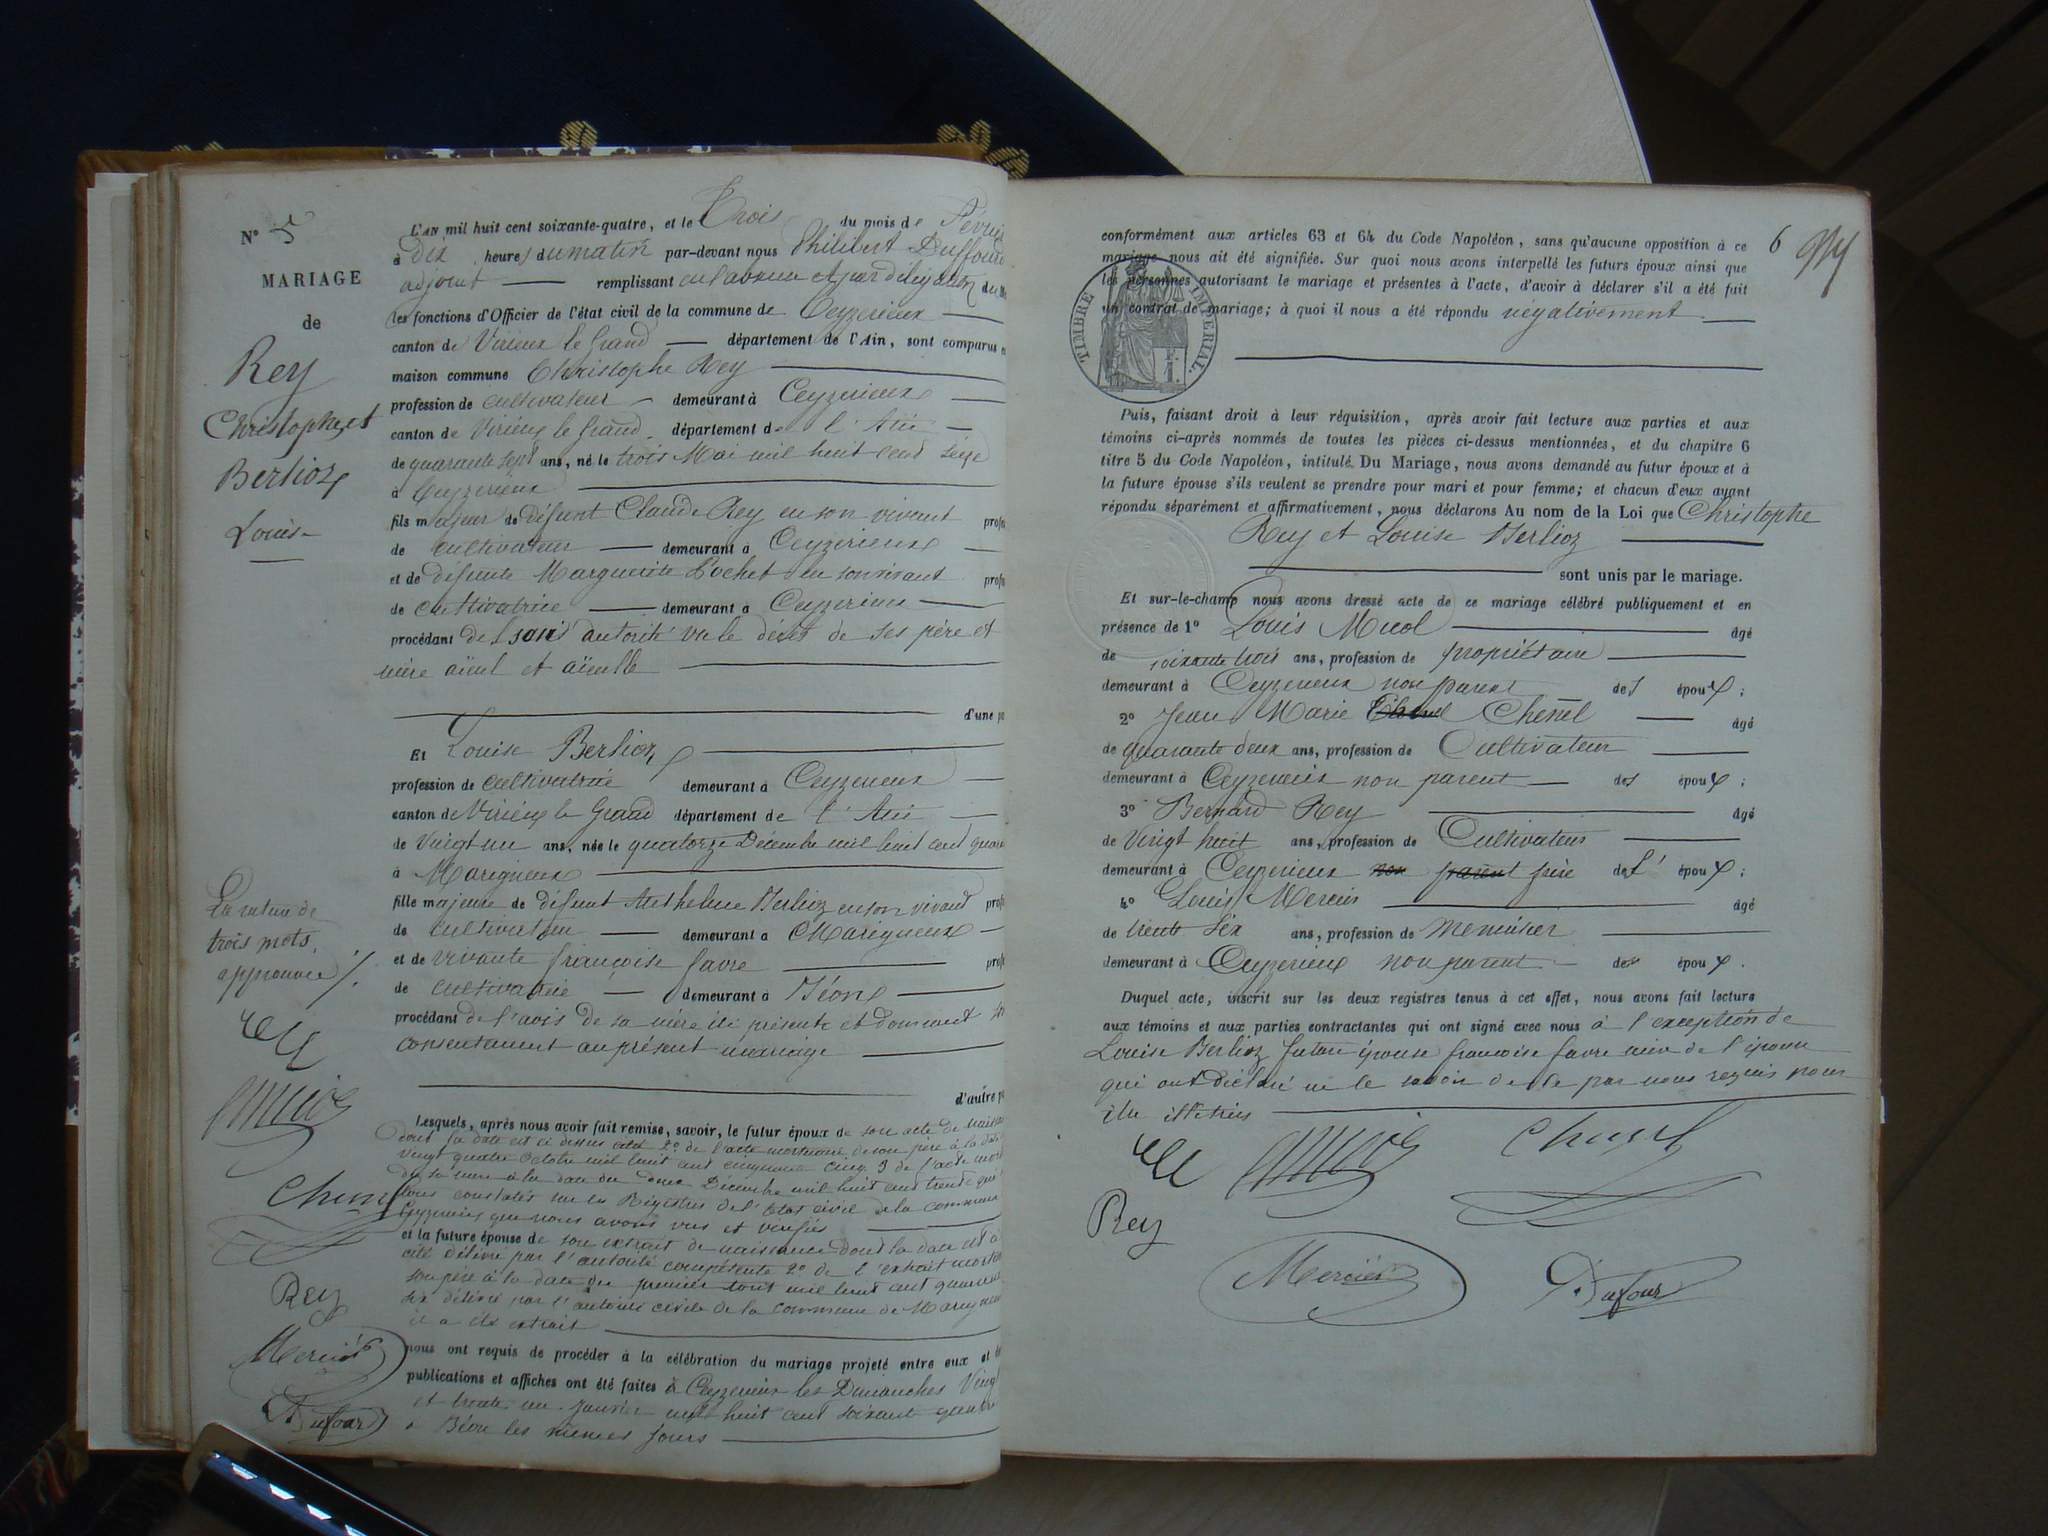 N° 5
MARIAGE
de
Rey
Christophe et
Berlioz
Louise
L'AN mil huit cent soixante-quatre, et le Trois du mois de Février
à Dix heures du matin par-devant nous Philibert Duffour
adjoint remplissant en l'absence et par délégation du
les fonctions d'Officier de l'état civil de la commune de Ceyzerieux
canton de Virieux le Grand département de l'Ain, sont comparus
maison commune Christophe Rey
profession de cultivateur demeurant à Ceyzerieux
canton de Virieux le Grand département de l'Ain
de quarante sept ans, né le trois Mai mil huit cent seize
à Ceyzerieux
fils majeur de défunt Claude Rey en son vivant profe
de cultivateur demeurant à Ceyzerieux
et de défunte Marguerite Pochet en son vivant profe
de cultivatrice demeurant à Ceyzerieux
procédant de sans autorité vu le décès de ses père et
mère aïeul et aïeulle
d'une pa
Et Louise Berlioz
profession de cultivatrice demeurant à Ceyzerieux
canton de Virieux le Grand département de l'Ain
de Vingt un ans, née le quatorze Décembre mil huit cent quara
à Marigneux
fille majeure de défunt Anthelme Berlioz en son vivant profe
de cultivateur demeurant a Marigneux
et de vivante françoise favre profe
de cultivatrice demeurant à Béon
procédant de l'avis de sa mère ici présente et donnant so
consentement au présent mariage
d'autre pa
La rature de
trois mots
approuvée
Chenel
Rey
Mercier
Dufour
Lesquels, après nous avoir fait remise, savoir, le futur époux de son acte de naissan
dont la date est ci dessus citée 2° de l'acte mortuaire de son père à la date
vingt quatre octobre mil huit cent cinquante cinq 3 de l'acte mor
de sa mère à la date du douze Décembre mil huit cent trente
tous constatés sur les Régistres de l'état civil de la commune
Ceyzerieux que nous avons vus et vérifiés
et la future épouse de son extrait de naissance dont la date est
cité délivré par l'autorité compétente 2° de l'extrait mortu
son père à la date du premier août mil huit cent quarante
six délivré par l'autorité civile de la commune de Marigneux
il a été extrait
nous ont requis de procéder à la célébration du mariage projeté entre eux et
publications et affiches ont été faites à Ceyzerieux les Dimanches Vingt
et trente un Janvier mil huit cent soixante quatre
à Béon les mêmes jours
6
conformément aux articles 63 et 64 du Code Napoléon, sans qu'aucune opposition à ce
mariage nous ait été signifiée. Sur quoi nous avons interpellé les futurs époux ainsi que
les personnes autorisant le mariage et présentes à l'acte, d'avoir à déclarer s'il a été fait
un contrat de mariage; à quoi il nous a été répondu négativement
TIMBRE IMPERIAL.
1 F.
Puis, faisant droit à leur réquisition, après avoir fait lecture aux parties et aux
témoins ci-après nommés de toutes les pièces ci-dessus mentionnées, et du chapitre 6
titre 5 du Code Napoléon, intitulé Du Mariage, nous avons demandé au futur époux et à
la future épouse s'ils veulent se prendre pour mari et pour femme; et chacun d'eux ayant
répondu séparément et affirmativement, nous déclarons Au nom de la Loi que Christophe
Rey et Louise Berlioz
sont unis par le mariage.
Et sur-le-champ nous avons dressé acte de ce mariage célébré publiquement et en
présence de 1° Louis Micol âgé
de soixante trois ans, profession de propriétaire
demeurant à Ceyzerieux non parent des époux;
2° Jean Marie Chenel Chenel âgé
de quarante deux ans, profession de Cultivateur
demeurant à Ceyzerieux non parent des époux;
3° Bernard Rey âgé
de Vingt huit ans, profession de Cultivateur
demeurant à Ceyzerieux non parent frère de l'époux;
4° Louis Mercier âgé
de trente six ans, profession de Menuisier
demeurant à Ceyzerieux non parent des époux.
Duquel acte, inscrit sur les deux registres tenus à cet effet, nous avons fait lecture
aux témoins et aux parties contractantes qui ont signé avec nous à l'exception de
Louise Berlioz future épouse françoise favre mère de l'épouse
qui ont déclaré ne le savoir de ce par nous requis pour
être illettrées
Chenel
Rey
Mercier
Dufour